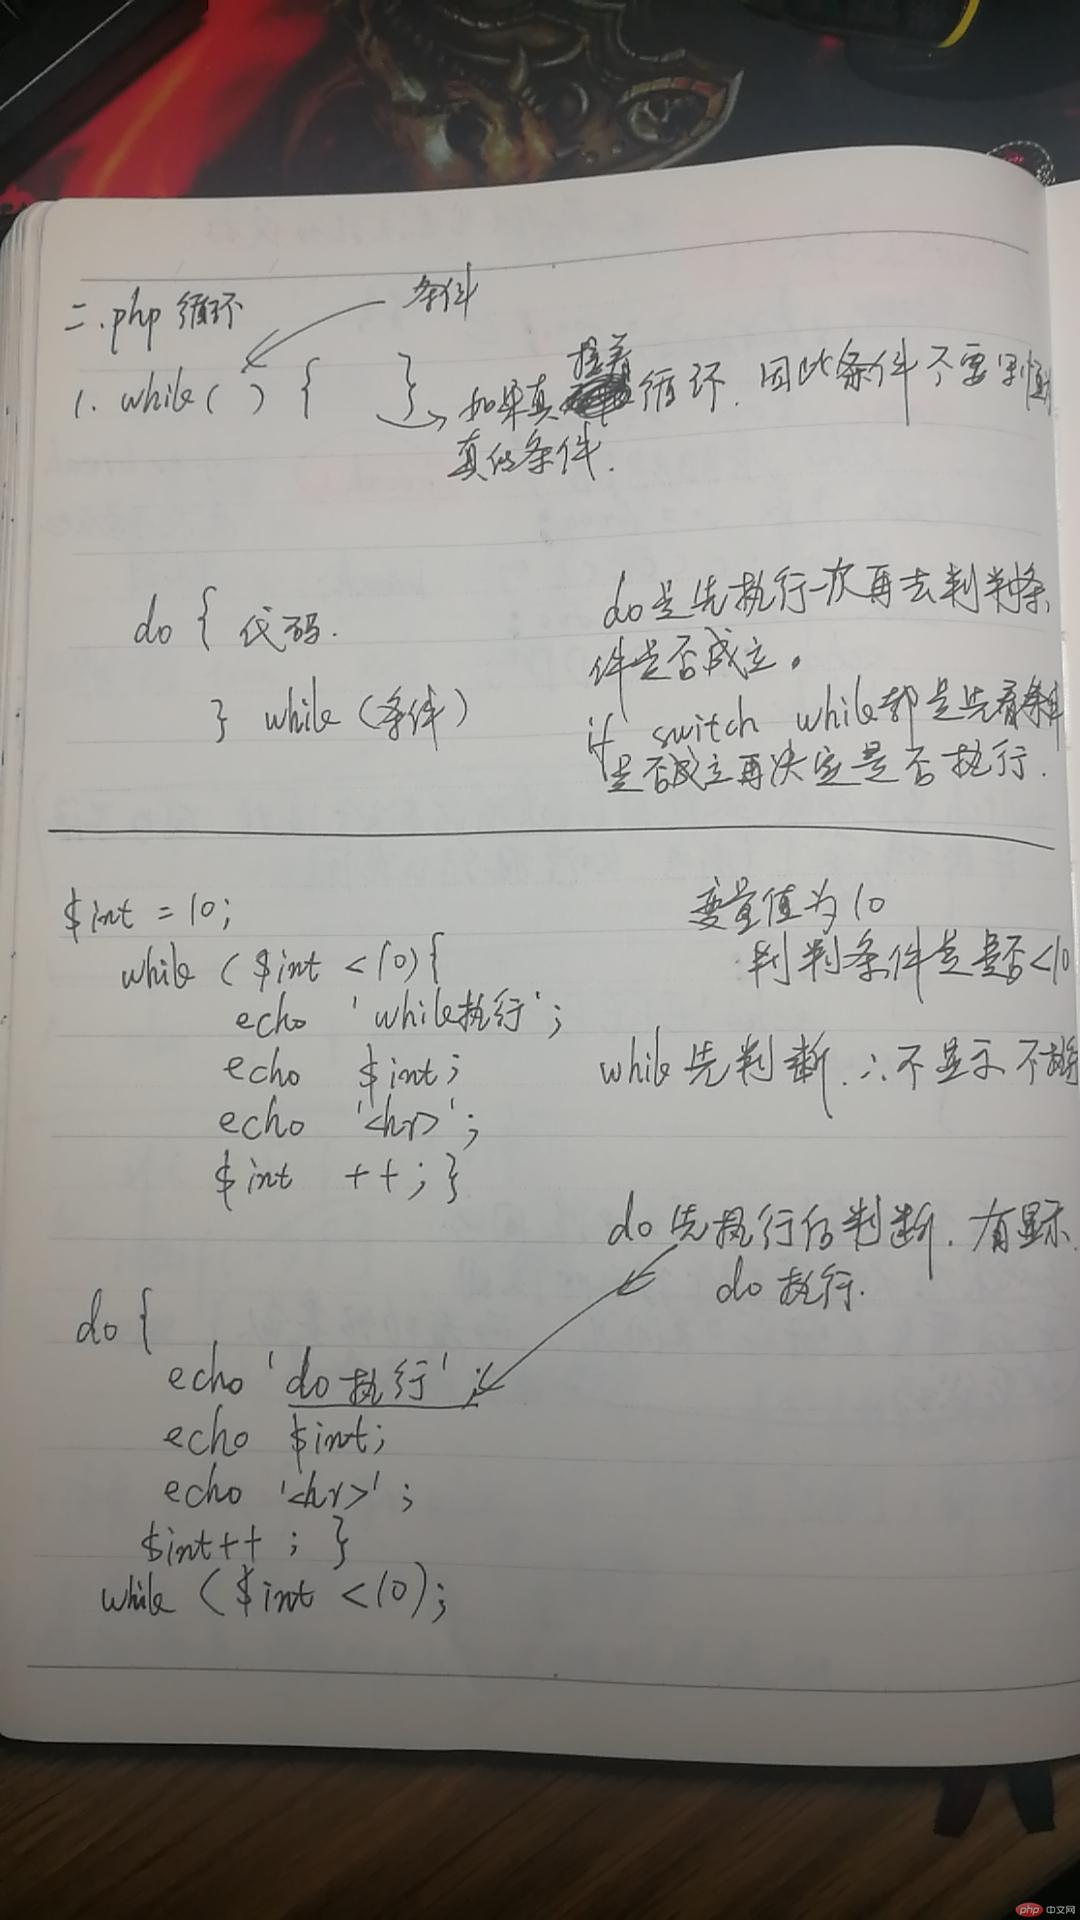 二.php 循环
条件
1. while ( ) { }
如果真 接着 循环. 因此条件不要写恒
真的条件.
do { 代码.
} while (条件)
do 是先执行一次再去判判条
件是否成立。
if switch while都是先看条件
是否成立再决定是否执行.
$int = 10;
while ( $int < 10) {
echo 'while执行';
echo $int;
echo '<hr>';
$int ++; }
变量值为10
判判条件是是否<10
while 先判断. ∴不显示 不
do 先执行后判断. 有显示.
do 执行.
do {
echo 'do 执行' ;
echo $int;
echo '<hr>' ;
$int++ ; }
while ($int <10);
php 中文网